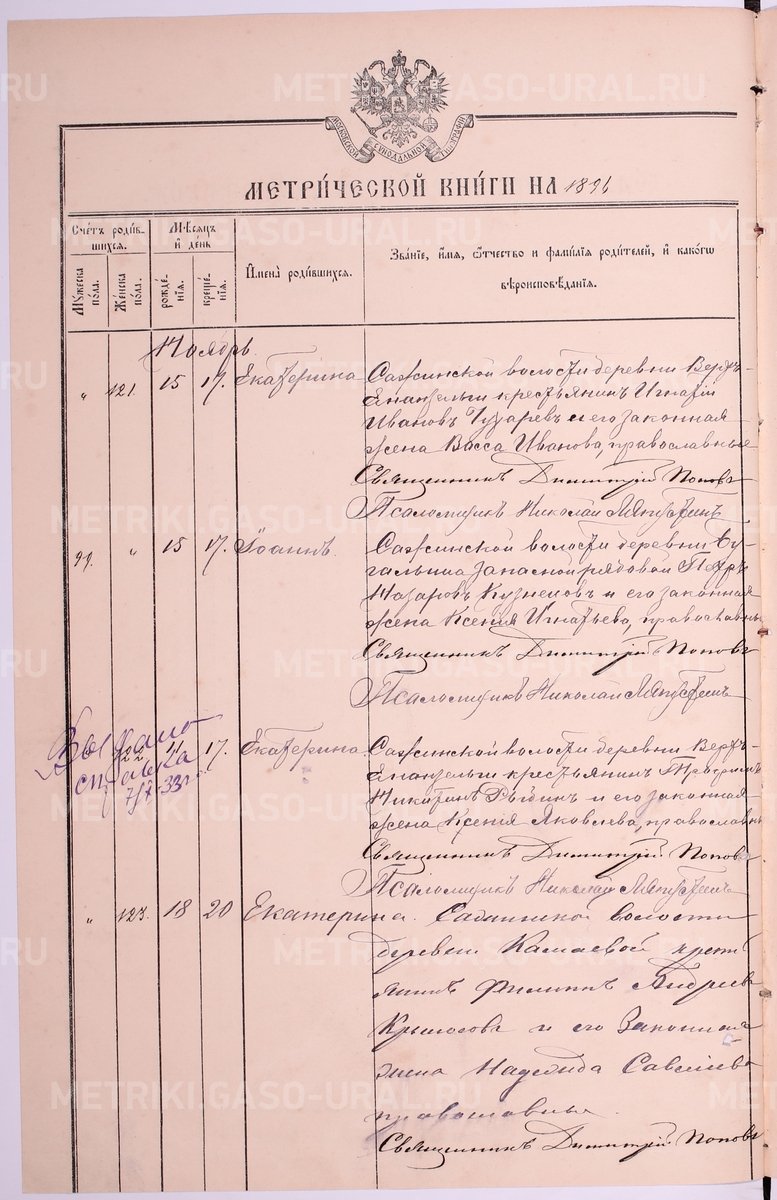 МОСКОВСКОЙ СѴНОДАЛЬНОЙ ТИПОГРАФІИ
МЕТРИ́ЧЕСКОЙ КНИ́ГИ НА 1896
Сче́тъ роди́в-
шихся.
Мѣ́сяцъ
и҆ де́нь
И҆мена̀ роди́вшихся.
Зва́нїе, и҆́мя, ѻ҆́тчество и фами́лїя роди́телей, и҆ како́гѡ
вѣроисповѣ́данїя.
Му́жеска по́ла.
Же́нска по́ла.
рожде́нїя.
креще́нїя.
Ноябрь.
" 121. 15 17. Екатерина Сажинской волости деревни Верхъ-
крестьянинъ Игнатій
Ивановъ и его законная
жена Васса Иванова, православные
Священникъ Димитрій Поповъ
Псаломщикъ Николай
99. " 15 17. Іоаннъ. Сажинской волости деревни Бу-
запасной рядовой Петръ
Назаровъ Кузнецовъ и его законная
жена Ксенія Игнатьева, православны
Священникъ Димитрій Поповъ
Псаломщикъ Николай
Выдано
справка
122 17. Екатерина Сажинской волости деревни Верхъ-
крестьянинъ
Никитинъ и его законная
жена Ксенія Яковлева, православны
Священникъ Димитрій Поповъ
Псаломщикъ Николай
" 123. 18 20 Екатерина. Сажинской волости
деревни Камаевой крестья
янинъ Филиппъ Андреевъ
и его законная
жена Надежда Савельева
православные.
Священникъ Димитрій Поповъ
METRIKI.GASO-URAL.RU